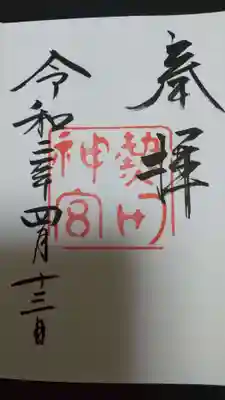 奉拝
熱田神宮
令和二年四月十三日